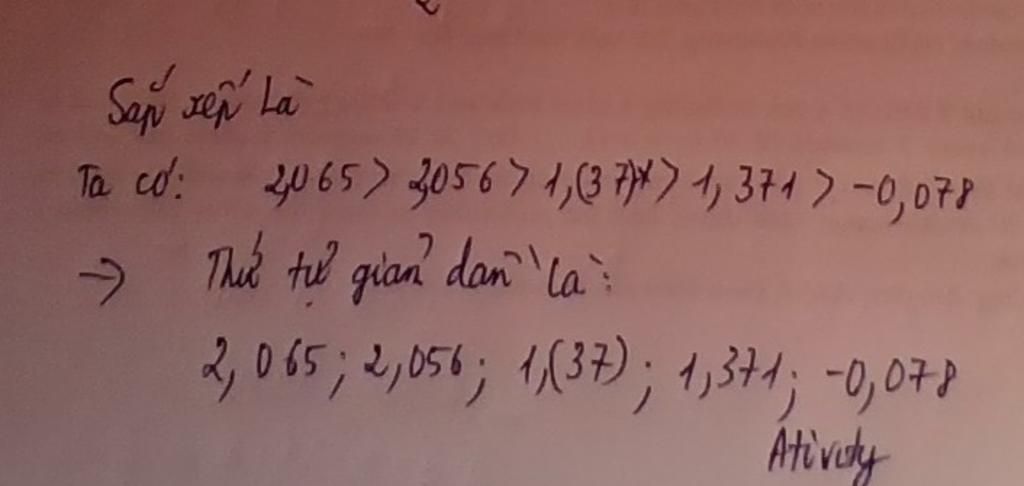 Sắp xếp là
Ta có: 2,065 > 2,056 > 1,(37) > 1,371 > -0,078
→ Thứ tự giản dần là:
2,065; 2,056; 1,(37); 1,371; -0,078
Ativity